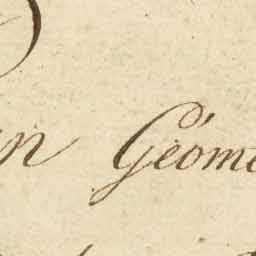 n Géom